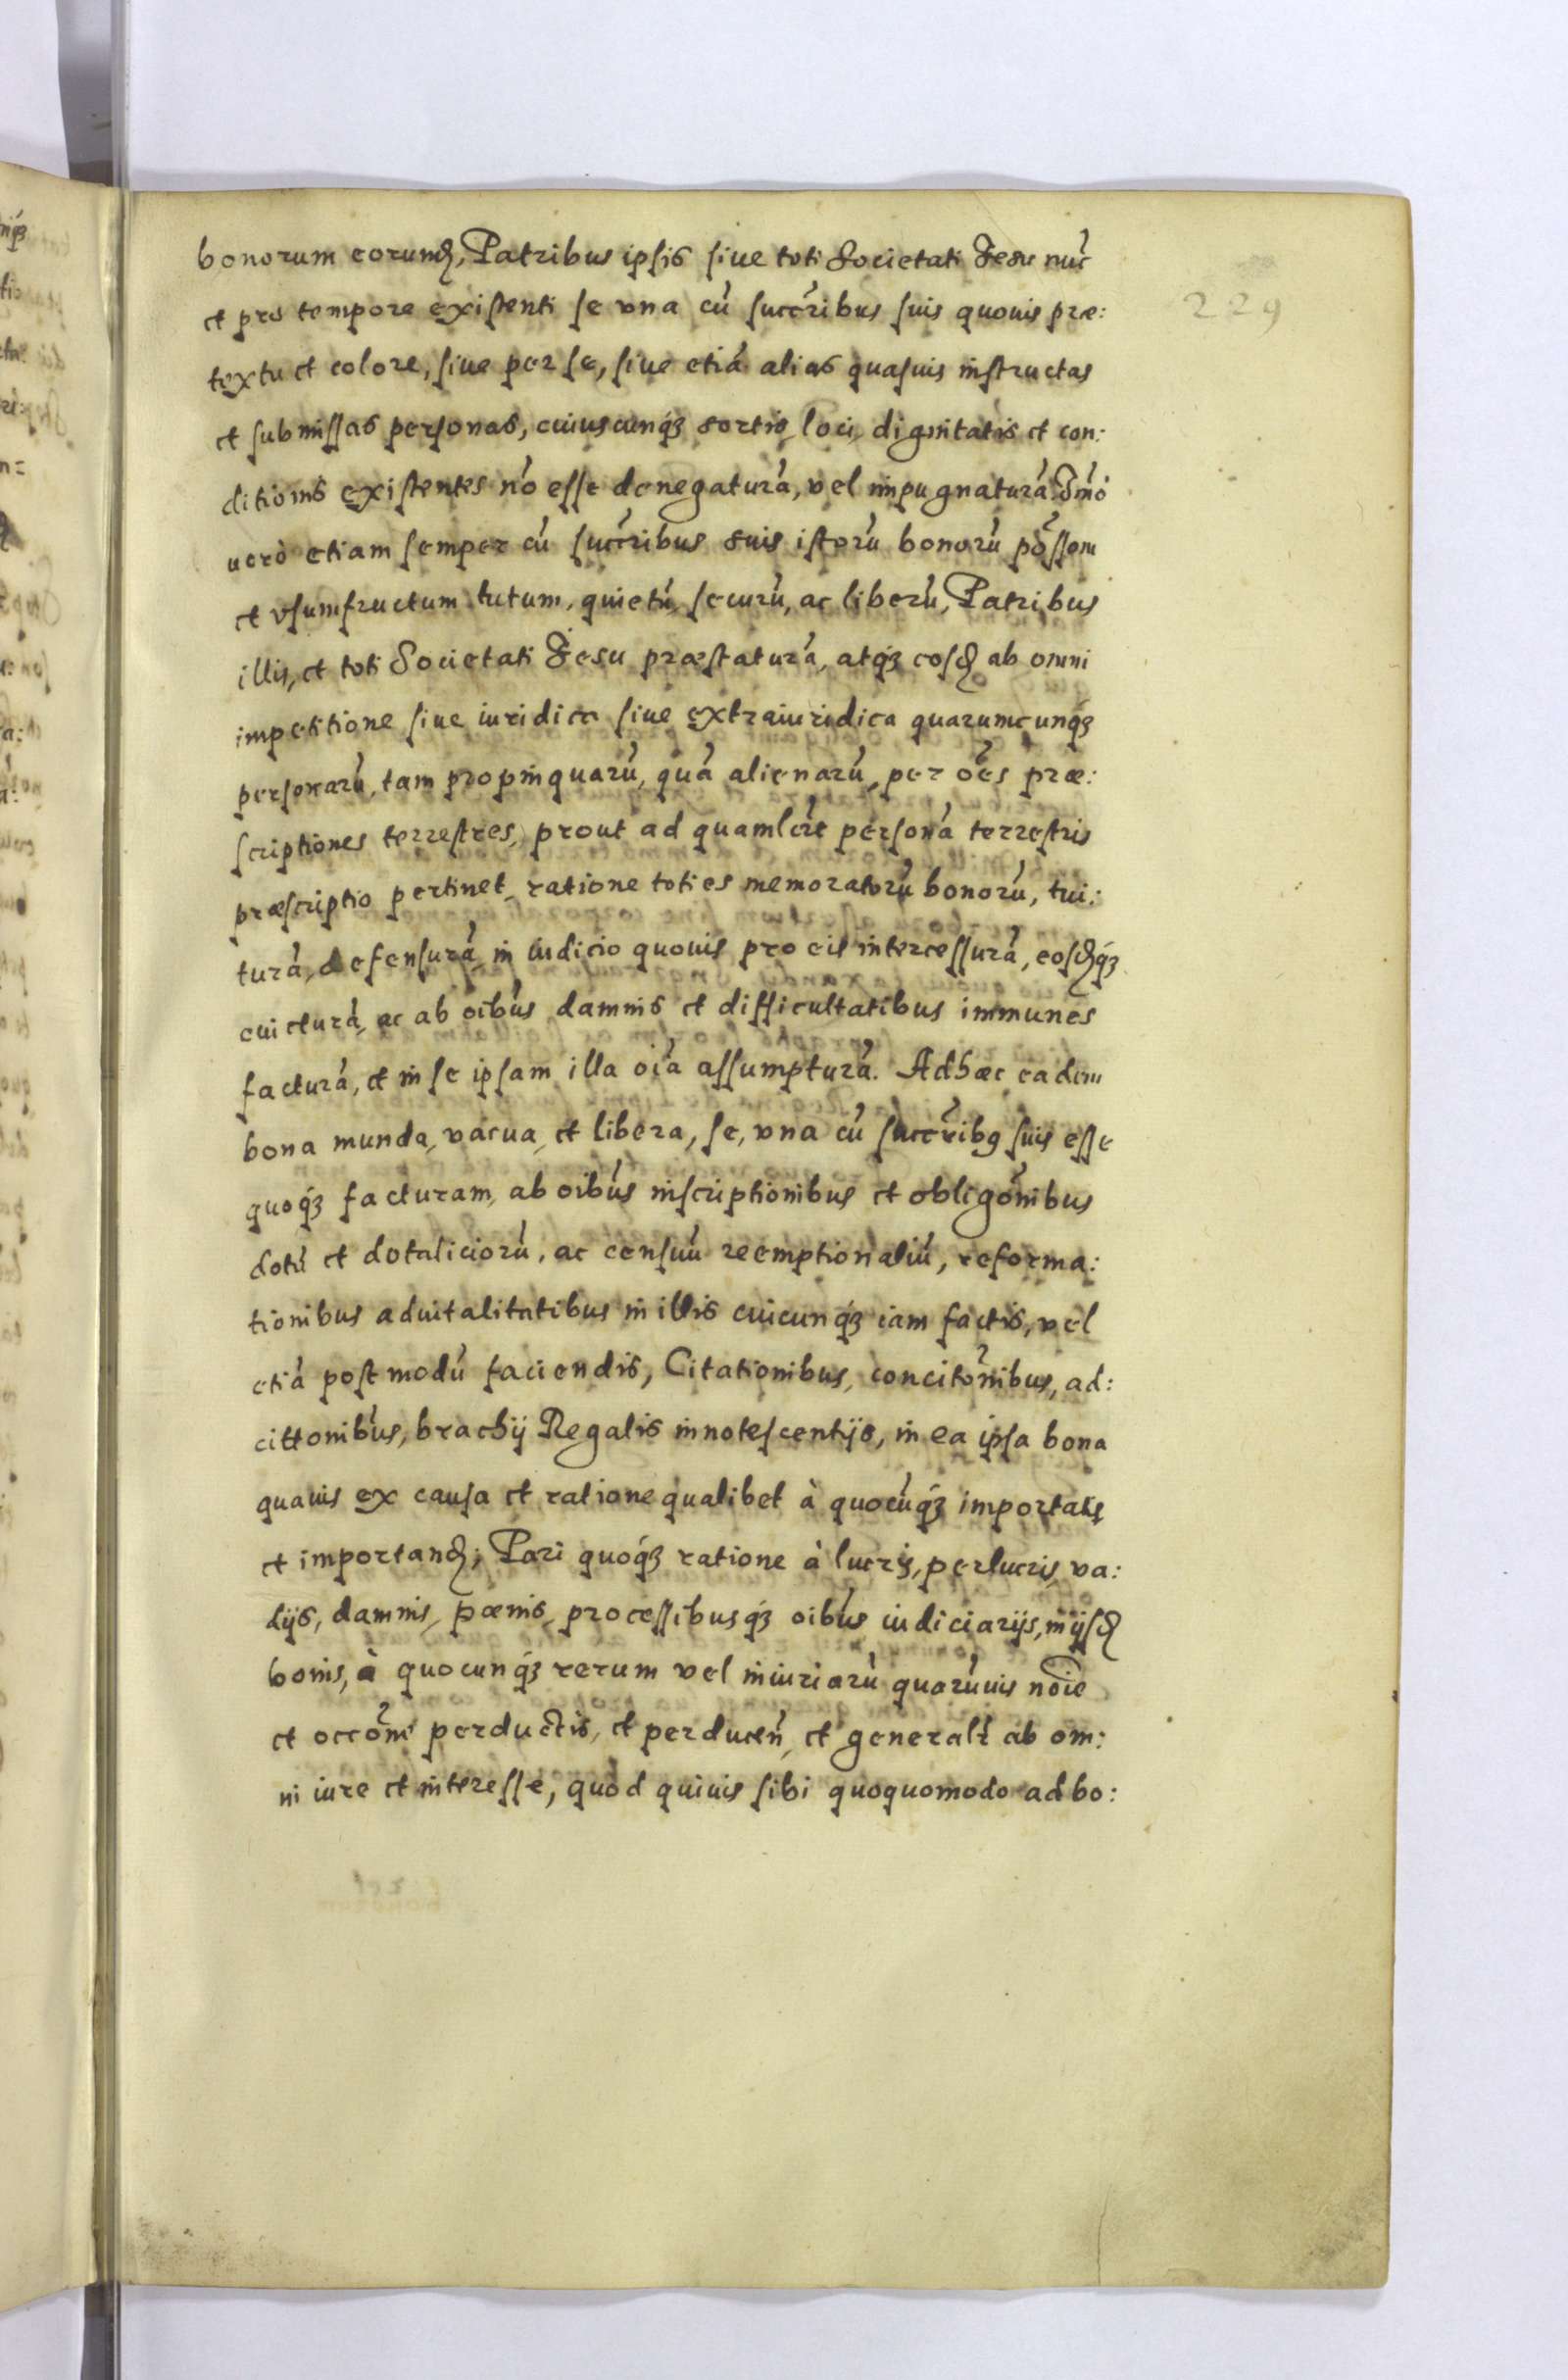 bonorum eorund, Patribus ipsis siue toti Societati Jesu nu͂c
229
et pro tempore existenti se vna cu͂ succ͂ribus suis quouis præ:
textu et colore, siue per se, siue etia͂ alias quasuis instructas
et submissas personas, cuiuscunq́ꝫ sortis, loci, dignitatis et con:
ditionis existentes no͂ esse denegatura͂, vel impugnatura͂. Im͂o
uerò etiam semper cu͂ succ͂ribus suis istoru͂ bonoru͂ po͂ssem
et vsumfructum tutum, quietu͂, securu͂, ac liberu͂, Patribus
illis, et toti Societati Jesu præstatura͂, atq́ꝫ eosd ab omni
impetitione siue iuridica siue extraiuridica quarumcunq́ꝫ
personaru͂, tam propinquaru͂, qua͂ alienaru͂, per o͂es præ:
scriptiones terrestres, prout ad quamlibt persona͂ terrestris
præscriptio pertinet, ratione toties memoratoru͂ bonoru͂, tui:
tura͂, defensura͂, in iudicio quouis pro eis intercessura͂, eosdq́ꝫ
euictura͂, ac ab oib͂us damnis et difficultatibus immunes
factura͂, et in se ipsam illa oi͂a assumptura͂. Adhæc eadem
bona munda, vacua, et libera, se, vna cu͂ succ͂ribꝫ suis esse
quoq́ꝫ facturam, ab oib͂us inscriptionibus et obligo͂nibus
dotu͂ et dotalicioru͂, ac censuu͂ reemptionaliu͂, reforma:
tionibus aduitalitatibus in illis cuicunq́ꝫ iam factis, vel
etia͂ postmodu͂ faciendis, Citationibus, concito͂nibus, ad:
cittonib͂us, brachij Regalis innotescentijs, in ea ipsa bona
quauis ex causa et ratione qualibet à quocu͂q́ꝫ importatis
et importand; Pari quoq́ꝫ ratione à lucris, perlucris, va:
dijs, damnis, pœnis, processibusq́ꝫ oib͂us iudiciarijs, in ijsd
bonis, à quocunq́ꝫ rerum vel iniuriaru͂ quaru͂uis no͂ie
et occo͂ne perductis, et perducen͂, et generalr ab om:
ni iure et interesse, quod quiuis sibi quoquomodo ad bo: